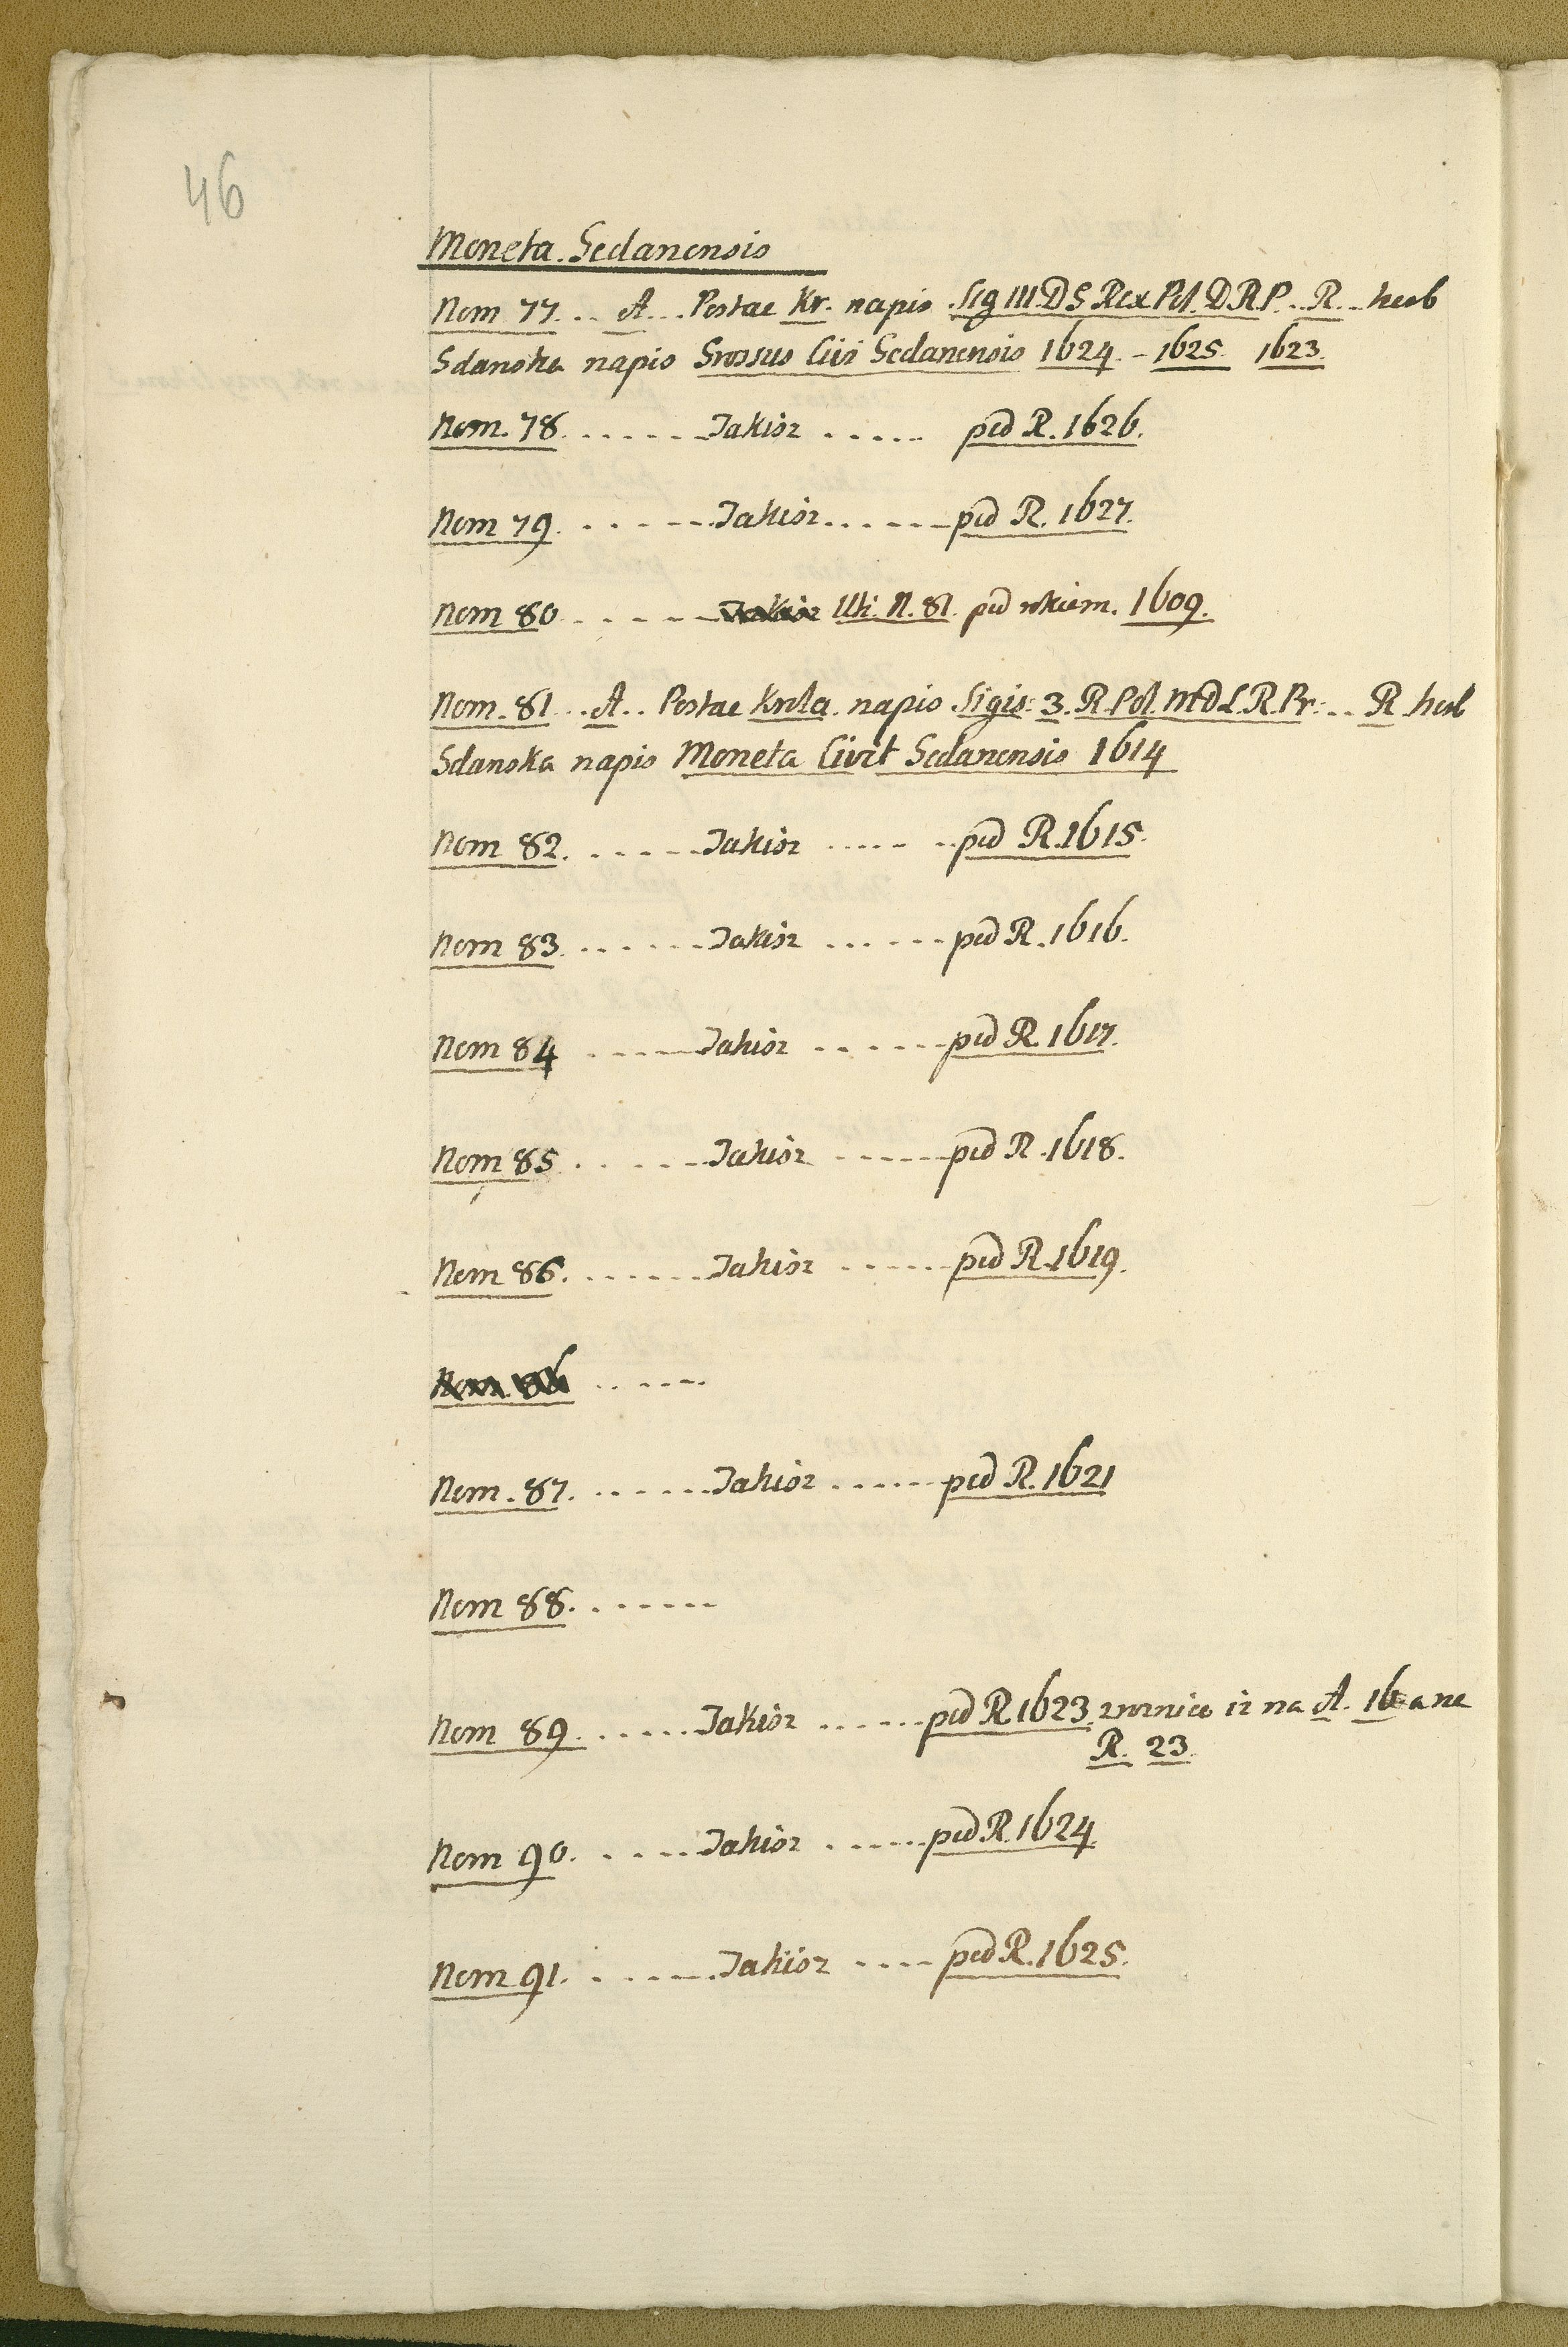 46
Moneta. Gedanensis
Nom 77... A... Postac Kr. napis Sig III D G Rex Pol. D. R. P. .. R... herb
Gdanska napis Grossus Civi Gedanensis 1624 - 1625. 1623.
Nom. 78. ...... Jakiòz ..... pod R. 1626.
Nom 79. ...... Jakiòz ...... pod R. 1627.
Nom 80 ..... Uti. N. 81 pod rokiem. 1609.
Nom. 81 .. A.. Postac Krola napis Sigis: 3. R. Pol. M.D.L.R. Pr: .. R herb
Gdanska napis Moneta Civit Gedanensis 1614
Nom 82. ..... Jakiòz ..... pod R. 1615.
Nom 83. ...... Jakiòz ...... pod R. 1616.
Nom 84 ..... Jakiòz ...... pod R. 1617.
Nom 85 ..... Jakiòz ...... pod R. 1618.
Nom 86. ...... Jakiòz ...... pod R. 1619.
Nom. 87. ...... Jakiòz ...... pod R. 1621
Nom 88. ......
Nom 89. ...... Jakiòz ...... pod R 1623. iz na A. 16 a na
R. 23.
Nom 90. ..... Jakiòz ...... pod R. 1624
Nom 91. ..... Jakiòz .... pod R. 1625.